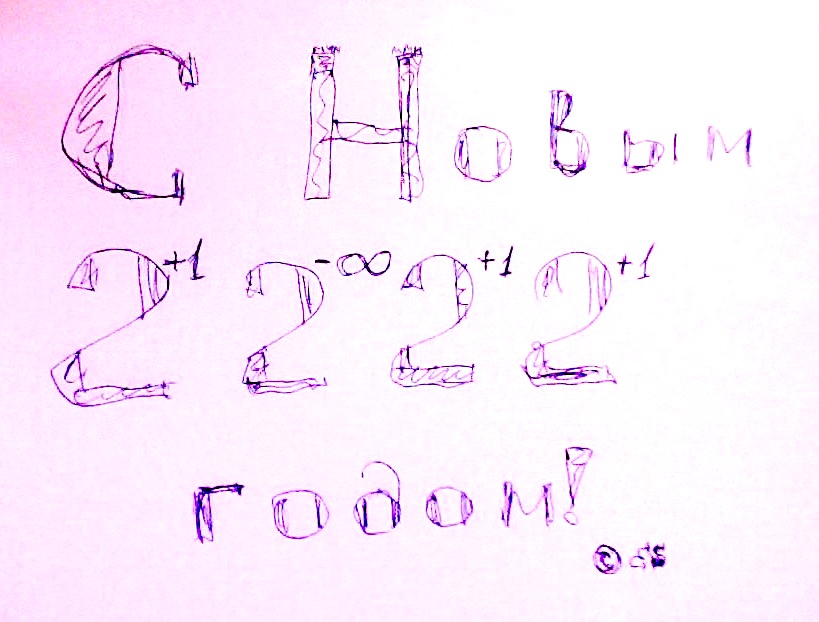 С Новым
2⁺¹ 2⁻∞ 2⁺¹ 2⁺¹
годом!